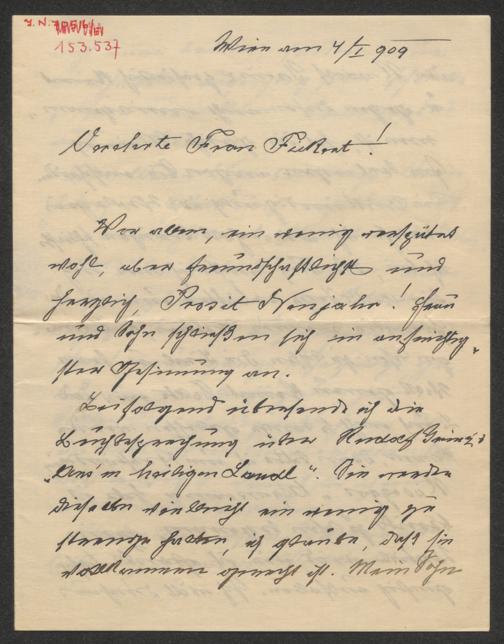 J. N.
153.537
Wien am 4/I 909
Verehrte Frau Fickert!
Vor allem, ein wenig verspätet
wohl, aber freundschaftlichst und
herzlich, Prosit Neujahr! Frau
und Sohn schließen sich in aufrichtig-
ster Gesinnung an.
Beifolgend übersende ich die
Buchbesprechung über Rudolf Greinz's
„Aus'm heiligen Landl". Sie werden
dieselbe vielleicht ein wenig zu
strenge halten, ich glaube, daß sie
vollkommen gerecht ist. Mein Sohn